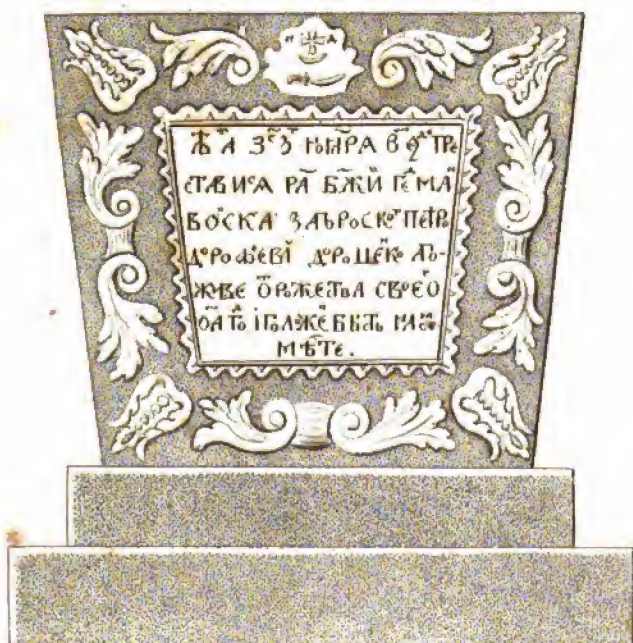 П Д
ЗС҃З НОЯ҃РА В Ѳ҃ ДН҃ ПРЕ
СТАВИСА РА҃ БЖ҃И ГЕ҃МА҃
ВОИСКА ЗАПОРОСКОГ ПЕТР
ДОРОѲЕЕВИ҃ ДОРОШЕ҃КО А ПО-
ЖИВЕ Ѿ РОЖЕСТВА СВОЕГО
ОА҃ И ПОЛОЖЕН БЫСТЬ НА СЕМ
МѢСТЕ.